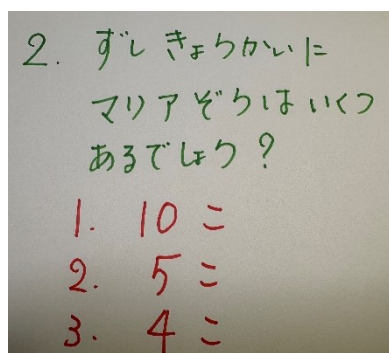 2. ずし きょうかいに
マリア ぞうは いくつ
あるでしょう？
1. 10こ
2. 5こ
3. 4こ